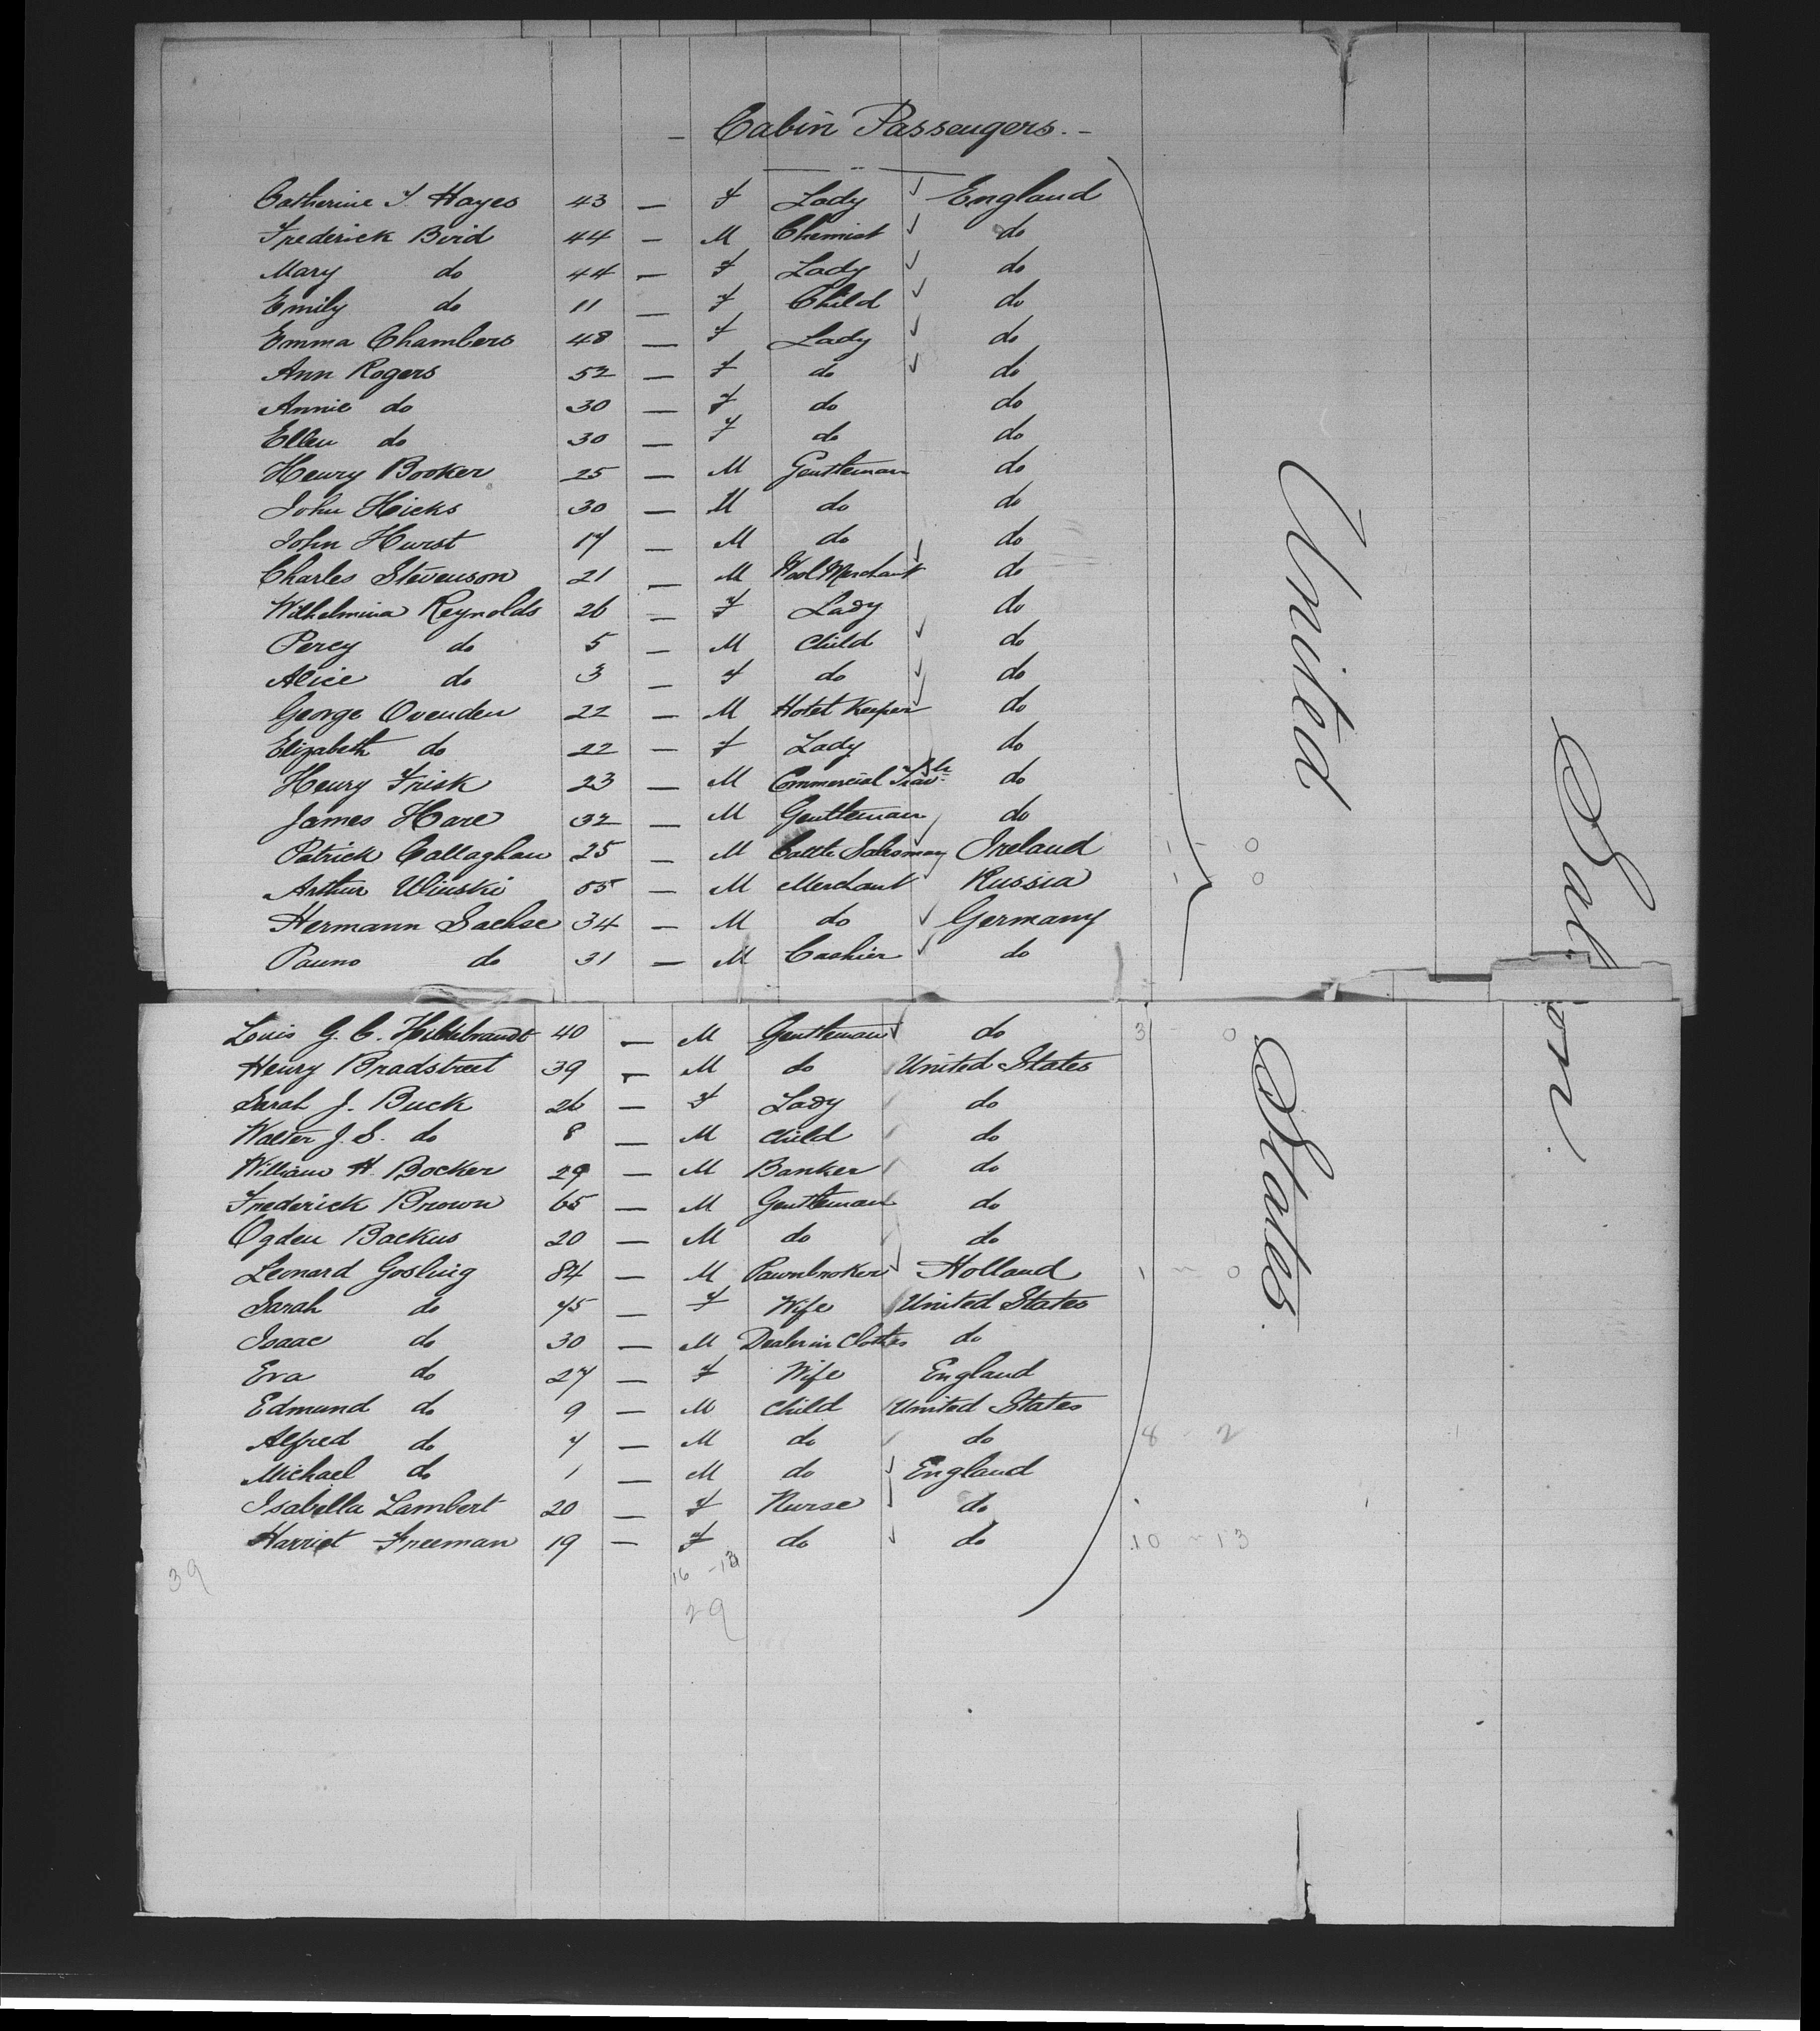 - Cabin Passengers. -
Catherine T. Hayes 43 — F Lady ✓ England
Frederick Bird 44 — M Chemist ✓ do
Mary do 44 — F Lady ✓ do
Emily do 11 — F Child ✓ do
Emma Chambers 48 — F Lady ✓ do
Ann Rogers 52 — F do ✓ do
Annie do 30 — F do do
Ellen do 30 — F do do
Henry Booker 25 — M Gentleman do
John Hicks 30 — M do do
John Hurst 17 — M do do
Charles Stevenson 21 — M Wool Merchant ✓ do
Wilhelmina Reynolds 26 — F Lady do
Percy do 5 — M Child ✓ do
Alice do 3 — F do ✓ do
George Ovenden 22 — M Hotel Keeper ✓ do
Elizabeth do 22 — F Lady do
Henry Frisk 23 — M Commercial Trav. do
James Hare 32 — M Gentleman do
Patrick Callaghan 25 — M Cattle Salesman Ireland 1 - 0
Arthur Winski 55 — M Merchant Russia 1 - 0
Hermann Sachse 34 — M do ✓ Germany
Pauno do 31 — M Cashier ✓ do
Louis G. C. Hildebrandt 40 — M Gentleman ✓ do 3 0
Henry Bradstreet 39 — M do United States
Sarah J. Buck 26 — F Lady do
Walter J. S. do 8 — M Child do
William H. Bocker 29 — M Banker do
Frederick Brown 65 — M Gentleman do
Ogden Backus 20 — M do do
Leonard Gosling 84 — M Pawnbroker ✓ Holland 1 - 0
Sarah do 75 — F Wife United States
Isaac do 30 — M Dealer in Clothes do
Eva do 27 — F Wife England
Edmund do 9 — M Child United States
Alfred do 7 — M do do 8 - 2
Michael do 1 — M do ✓ England
Isabella Lambert 20 — F Nurse ✓ do
Harriet Freeman 19 — F do ✓ do 10 - 13
39
16 - 13
29
United States.
Saloon.